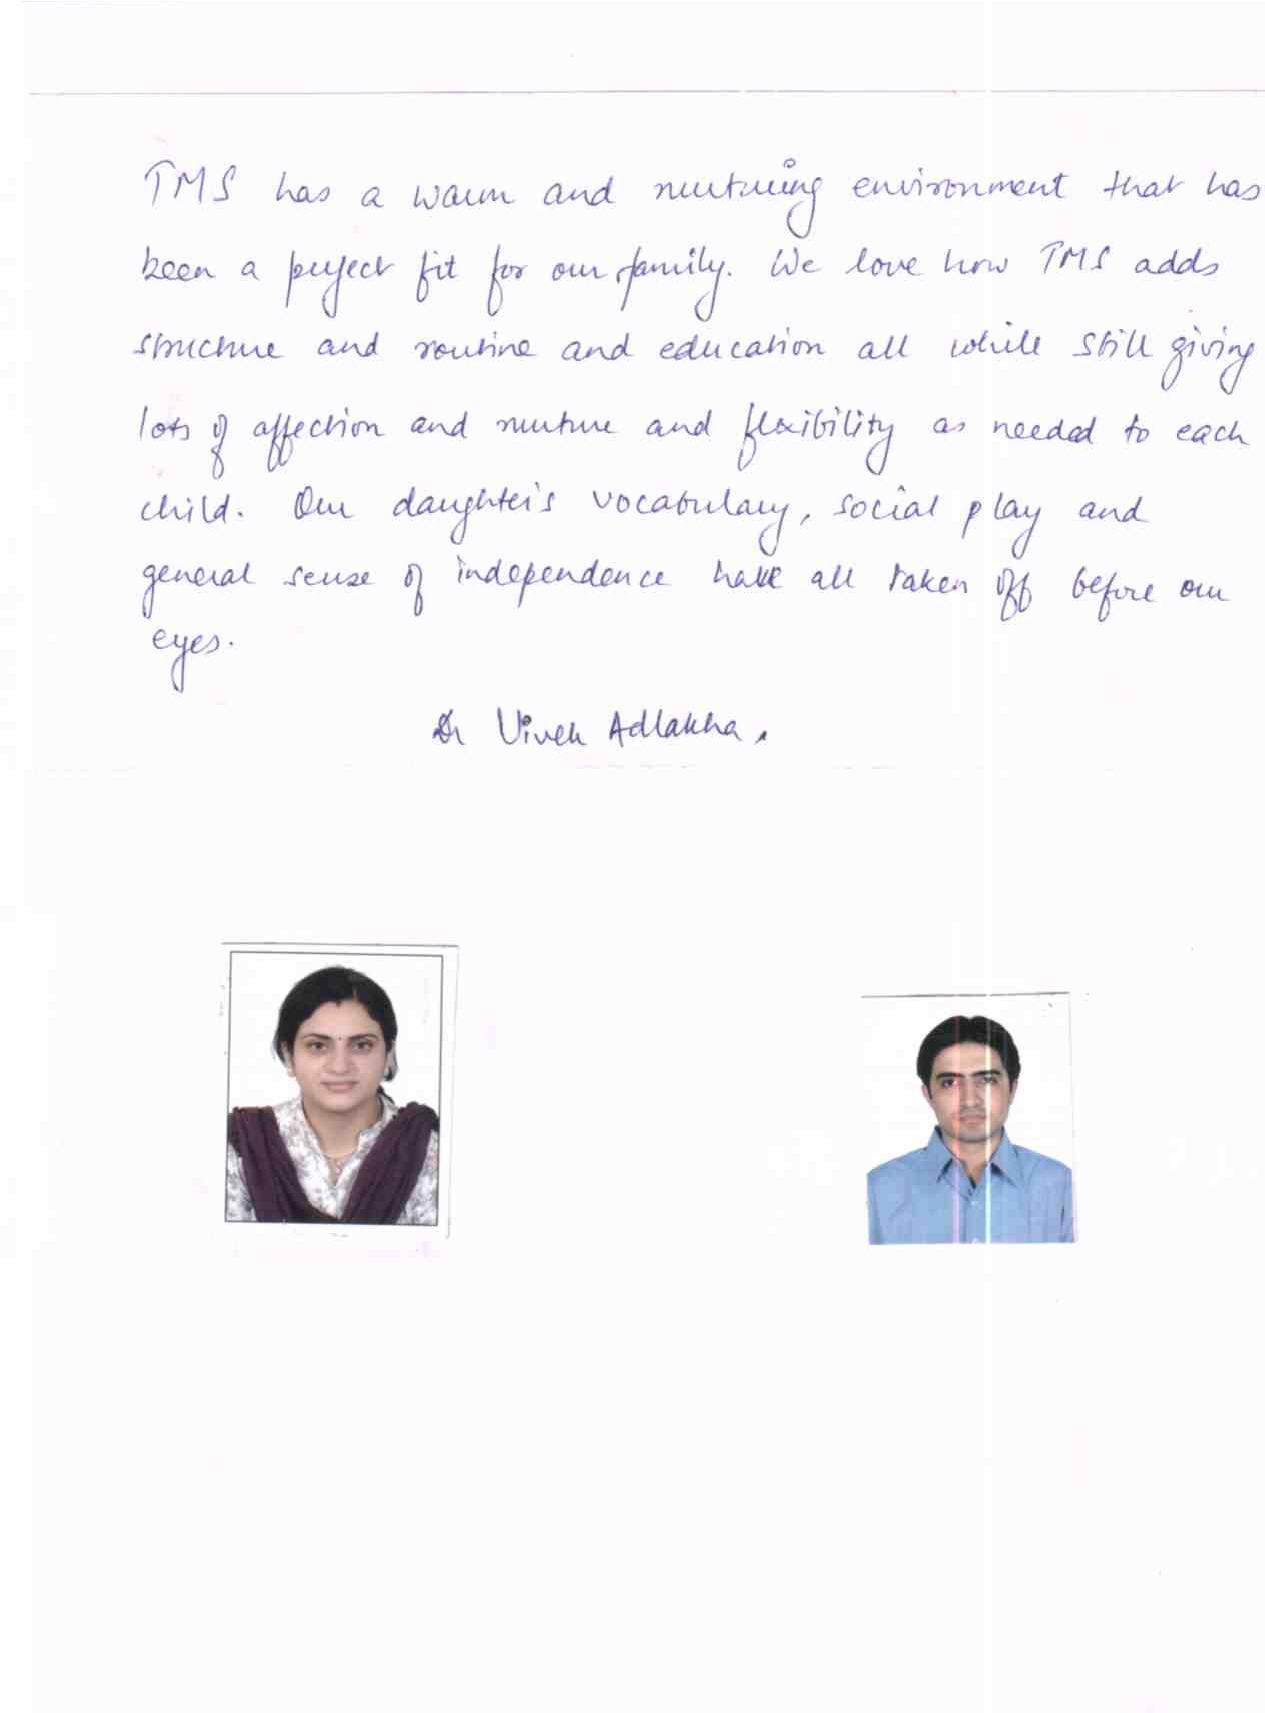 TMS has a warm and nurturing environment that has
been a perfect fit for our family. We love how TMS adds
structure and routine and education all while still giving
lots of affection and nurture and flexibility as needed to each
child. Our daughter's vocabulary, social play and
general sense of independence have all taken off before our
eyes.
Dr Vivek Adlakha.